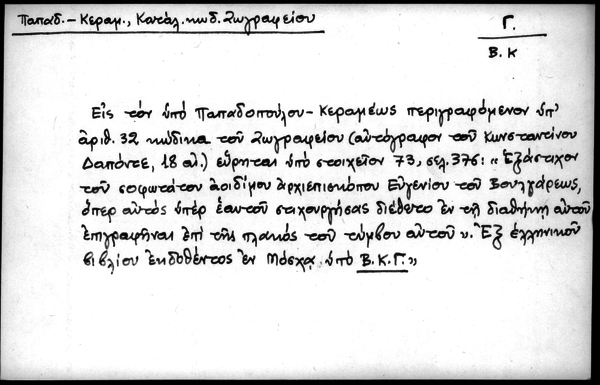 Παπαδ.-Κεραμ., Κατάλ. κωδ. Ζωγραφείου
Γ.
Β. Κ
Εἰς τὸν ὑπὸ Παπαδοπούλου-Κεραμέως περιγραφόμενον ὑπ'
ἀριθ. 32 κώδικα τοῦ Ζωγραφείου (αὐτόγραφον τοῦ Κωνσταντίνου
Δαπόντε, 18 αἰ.) εὕρηται ὑπὸ στοιχεῖον 73, σελ. 376: « Ἑξάστιχον
τοῦ σοφωτάτου ἀοιδίμου ἀρχιεπισκόπου Εὐγενίου τοῦ Βουλγάρεως,
ὅπερ αὐτὸς ὑπὲρ ἑαυτοῦ στιχουργήσας διέθετο ἐν τῇ διαθήκῃ αὐτοῦ
ἐπιγραφῆναι ἐπὶ τῆς πλακὸς τοῦ τύμβου αὐτοῦ ». Ἐξ ἑλληνικοῦ
βιβλίου ἐκδοθέντος ἐν Μόσχᾳ ὑπὸ Β. Κ. Γ. »